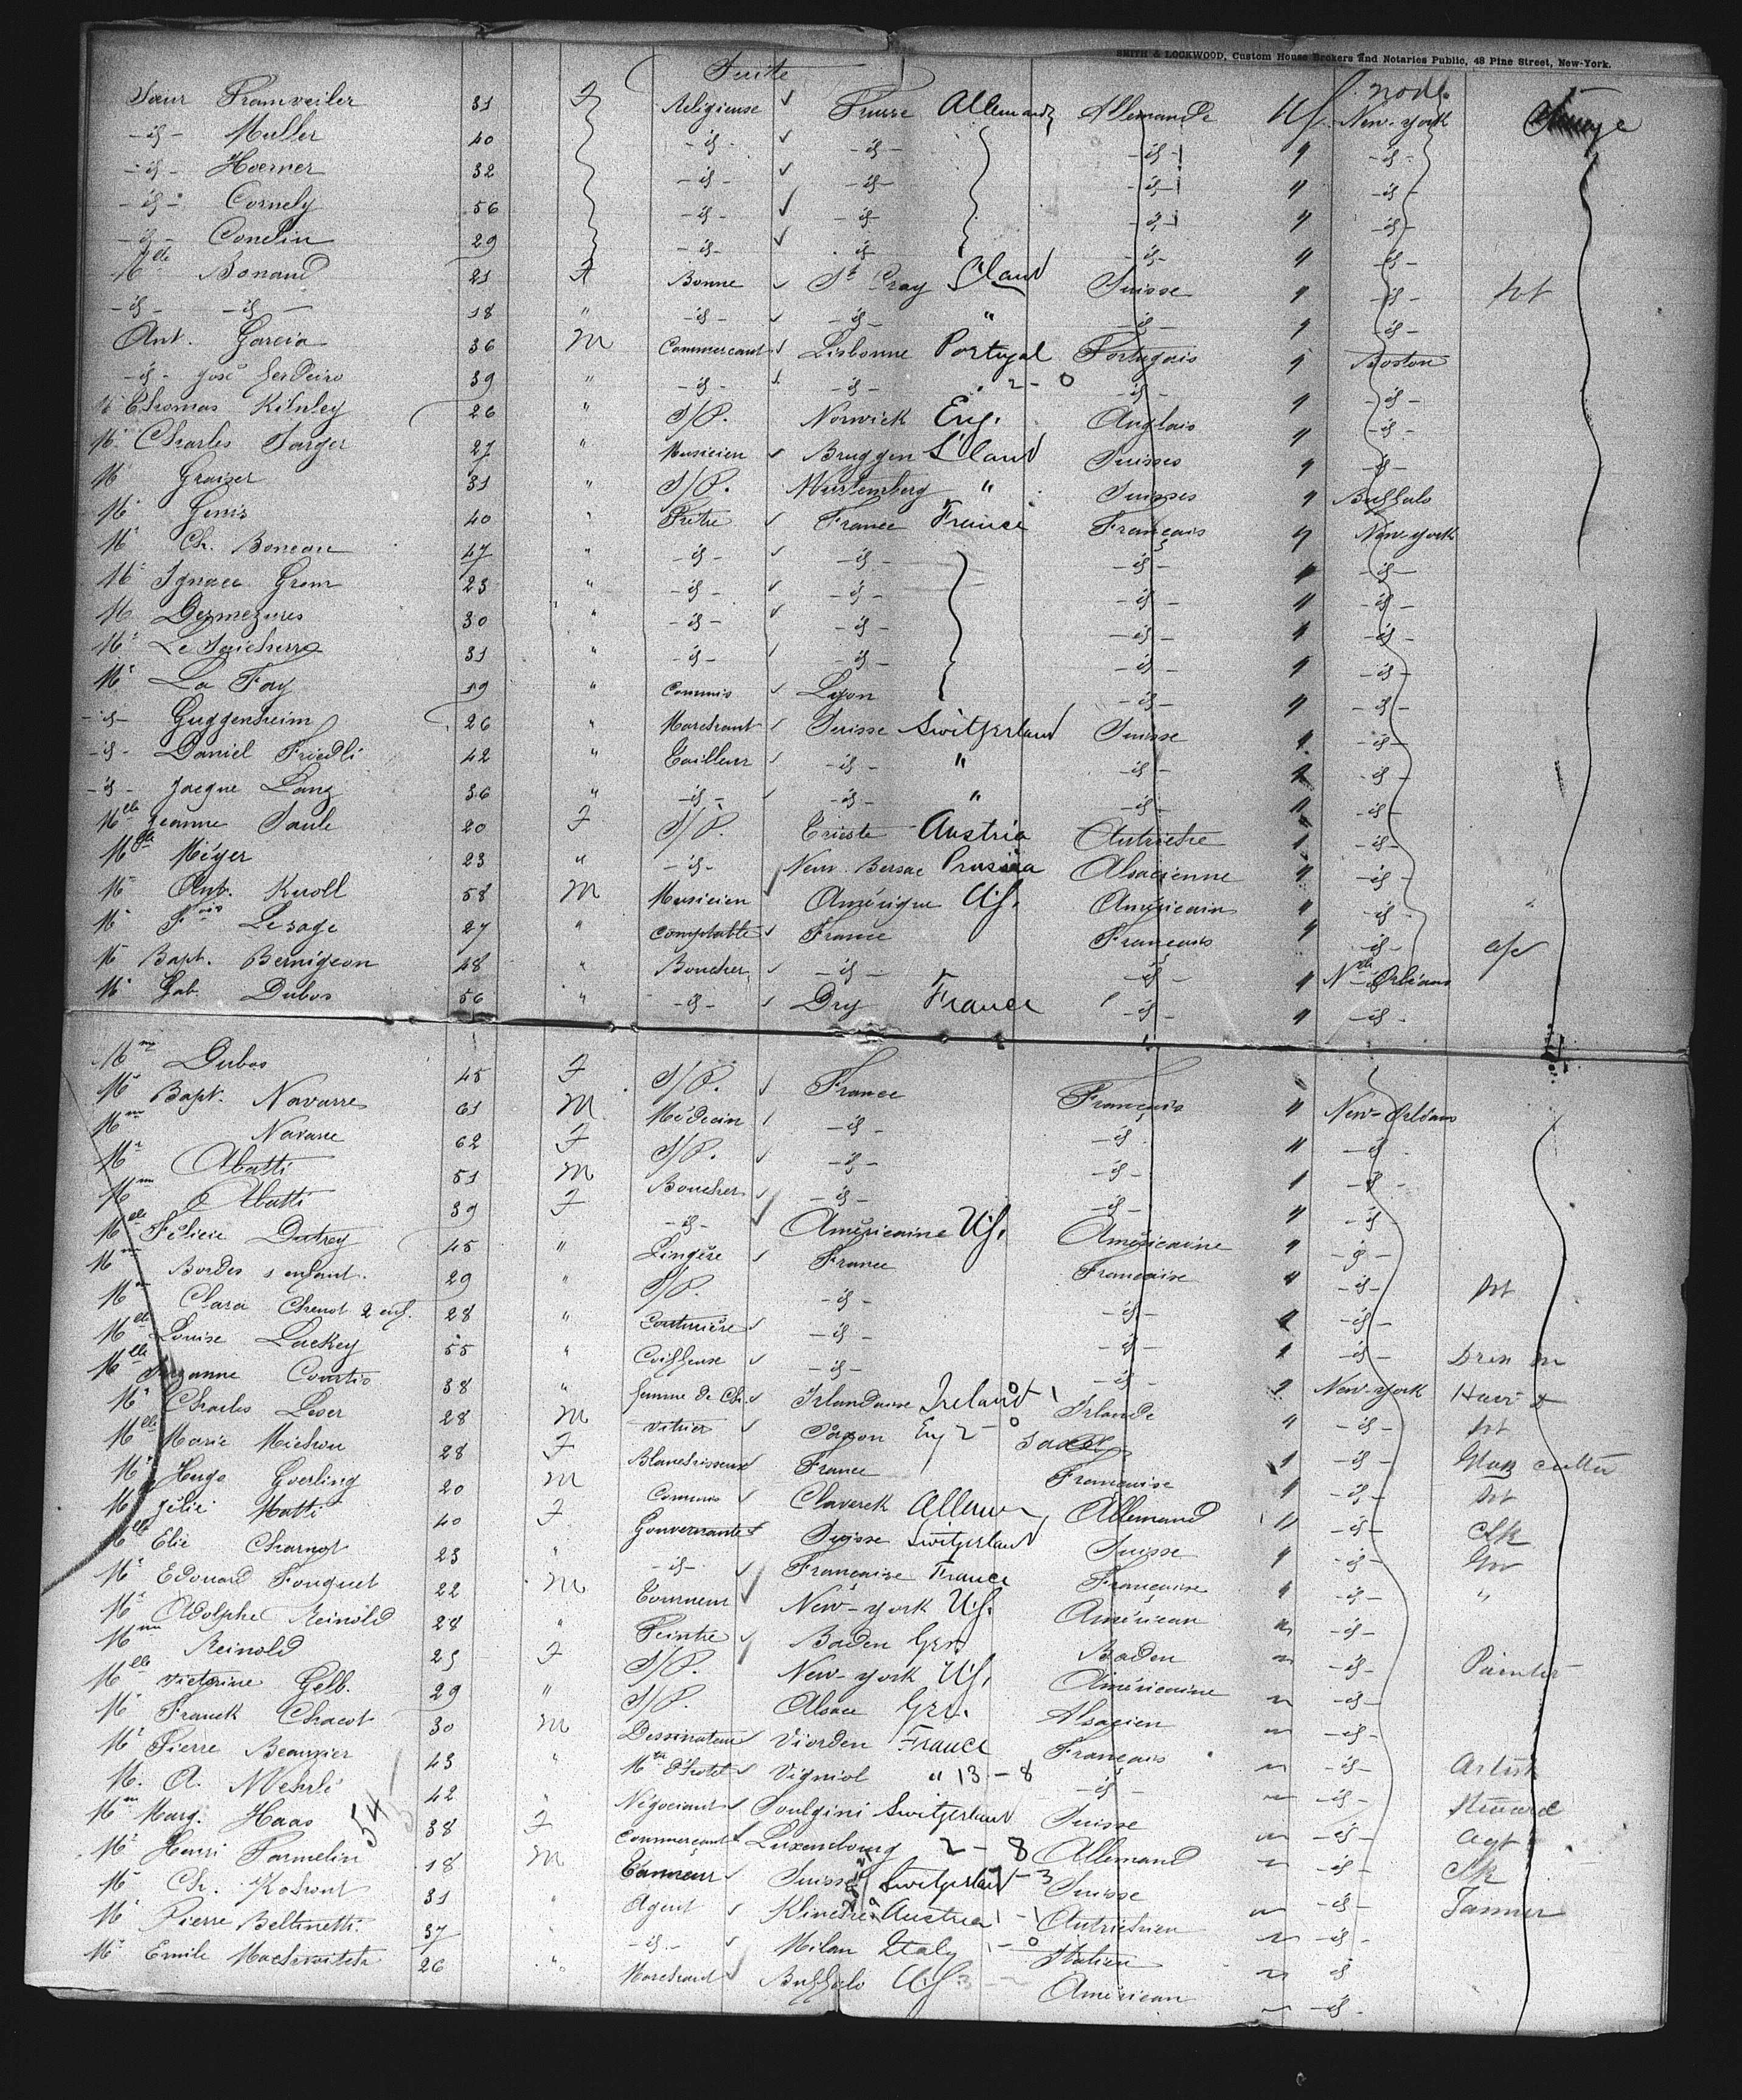 SMITH & LOCKWOOD, Custom House Brokers and Notaries Public, 48 Pine Street, New-York.
Suite
Sœur Framveiler 31 F Religieuse Prusse Allemande Allemande US New-York
-id- Muller 40 -id- -id- -id- " -id-
-id- Hoerner 32 -id- -id- -id- " -id-
-id- Cornely 56 -id- -id- -id- " -id-
-id- Conelin 29 -id- -id- -id- " -id-
Mlle Bonand 21 F Bonne St Cray S'land Suisse " -id-
-id- -id- 18 " -id- -id- " -id- " -id-
Ant. Garcia 36 M Commercant Lisbonne Portugal Portugais " Boston
-id- José 39 " -id- -id- 2-0 -id- " -id-
M Thomas Kilnley 26 " S/P. Norwick Eng. Anglais " -id-
Mr Charles Sarger 27 " Musicien Bruggen S'land Suisses " -id-
M Graiser 31 " S/P. Wurtemberg " Suisses " Buffalo
Mr Genis 40 " Prêtre France France Français " New-york
Mr Ch. Boneau 47 " -id- -id- -id- " -id-
Mr Ignace Grom 23 " -id- -id- -id- " -id-
M Dezmezures 30 " -id- -id- -id- " -id-
Mr 31 " -id- -id- -id- " -id-
Mr La Fay 19 " Commis Lyon -id- " -id-
-id- Guggenheim 26 " Marchant Suisse Switzerland Suisse " -id-
-id- Daniel Friedli 42 " Tailleur -id- " -id- " -id-
-id- Jacque Lang 36 " -id- -id- " -id- " -id-
Mlle Jeanne Saule 20 F S/P. Trieste Austria " -id-
Mlle Méyer 23 " -id- Neuv. Prussia Alsacienne " -id-
Mr Ant. Knoll 58 M Musicien Amérique US. Américain " -id-
Mr Fois Lesage 27 " Comptable France Français " -id-
Mr Bapt. Bernigeon 48 " Boucher -id- -id- " Nlle Orléans
Mr Gab. Dubos 56 " -id- Dry France -id- " -id-
Mme Dubos 45 F S/P. France Français " New-Orléans
Mr Bapt. Navarre 61 M Médecin -id- -id- " -id-
Mme Navarre 62 F S/P. -id- -id- " -id-
Mr Abatti 51 M Boucher -id- -id- " -id-
Mme Abatti 39 F -id- Américaine US. Américaine " -id-
Mlle Félicie Dutrey 45 " Lingère France Française " -id-
Mme Bordes 1 enfant. 29 " S/P. -id- -id- " -id-
Mme Clara Chenot 2 enf. 28 " Couturière -id- -id- " -id-
Mlle Louise Lackey 55 " Coiffeuse -id- -id- " New-york
Mlle Suzanne Courtio 38 " femme de Ch. Irlandaise Ireland Irlande " -id-
Mr Charles Leser 28 M Vitrier Saxon -id- Glass cutter
Mlle Marie Michon 28 F Blanchisseuse France Française " -id-
Mr Hugo Goerling 20 M Commis Claverek Allem Allemand " -id- Clk
Mlle Matti 40 F Gouvernante Suisse Switzerland Suisse " -id- Gov
Mlle Elie Charnot 23 " -id- Française France Française " -id- "
Mr Edouard Fouquet 22 M Tourneur New-york US. Américan " -id-
Mr Adolphe Reinold 28 " Peintre Baden Ger. Baden " -id- Painter
Mme Reinold 25 F S/P. New-york US. Américaine " -id-
Mlle Victorine Gelb. 29 " S/P. Alsace Ger. Alsacien " -id-
Mr Franck Chacot 30 M Dessinateur Viorden France Français " -id- Artist
Mr Pierre Beauzier 43 " Mtre d'hotel Vigniol " 13-8 -id- " -id- Steward
M. A. Wehrli 42 " Négociant Soulgini Switzerland Suisse " -id- Agt
Mme Marg. Haas 38 F Commerçant Luxembourg 2-8 Allemand " -id- Clk
Mr Henri Formelin 18 M Tanneur Suisse Switzerland -3 Suisse " -id- Tanner
Mr Ch. 31 " Agent Austria Autrichien " -id-
Mr Pierre Beltinetti 37 " -id- Milan Italy 1-0 Italien " id
Mr Emile 26 " Marchand Buffalo US Américan " -id-
54